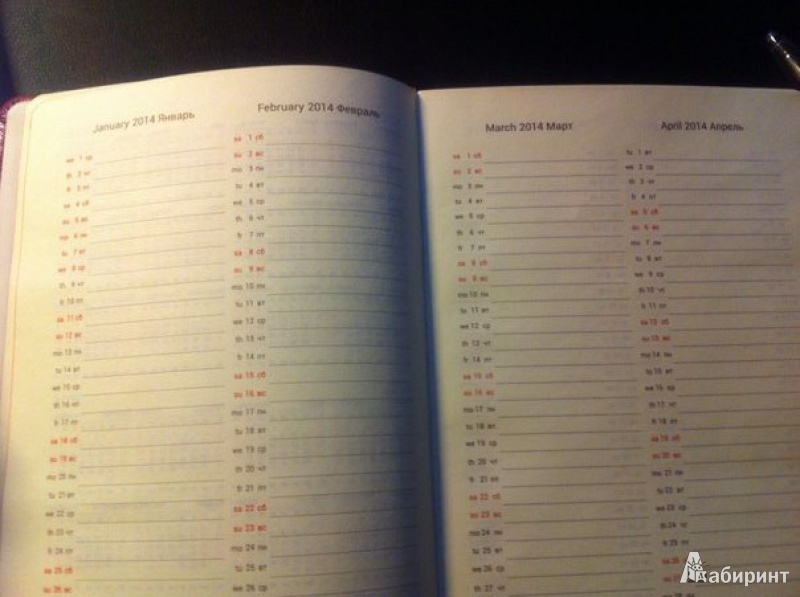 January 2014 Январь
we 1 ср
th 2 чт
fr 3 пт
sa 4 сб
su 5 вс
mo 6 пн
tu 7 вт
we 8 ср
th 9 чт
fr 10 пт
sa 11 сб
su 12 вс
mo 13 пн
tu 14 вт
we 15 ср
th 16 чт
fr 17 пт
sa 18 сб
su 19 вс
mo 20 пн
tu 21 вт
we 22 ср
th 23 чт
fr 24 пт
sa 25 сб
su 26 вс
February 2014 Февраль
sa 1 сб
su 2 вс
mo 3 пн
tu 4 вт
we 5 ср
th 6 чт
fr 7 пт
sa 8 сб
su 9 вс
mo 10 пн
tu 11 вт
we 12 ср
th 13 чт
fr 14 пт
sa 15 сб
su 16 вс
mo 17 пн
tu 18 вт
we 19 ср
th 20 чт
fr 21 пт
sa 22 сб
su 23 вс
mo 24 пн
tu 25 вт
we 26 ср
March 2014 Март
sa 1 сб
su 2 вс
mo 3 пн
tu 4 вт
we 5 ср
th 6 чт
fr 7 пт
sa 8 сб
su 9 вс
mo 10 пн
tu 11 вт
we 12 ср
th 13 чт
fr 14 пт
sa 15 сб
su 16 вс
mo 17 пн
tu 18 вт
we 19 ср
th 20 чт
fr 21 пт
sa 22 сб
su 23 вс
mo 24 пн
tu 25 вт
we 26 ср
th 27 чт
April 2014 Апрель
tu 1 вт
we 2 ср
th 3 чт
fr 4 пт
sa 5 сб
su 6 вс
mo 7 пн
tu 8 вт
we 9 ср
th 10 чт
fr 11 пт
sa 12 сб
su 13 вс
mo 14 пн
tu 15 вт
we 16 ср
th 17 чт
fr 18 пт
sa 19 сб
su 20 вс
mo 21 пн
tu 22 вт
we 23 ср
th 24 чт
fr 25 пт
sa 26
su 27
mo 28 пн
Лабиринт